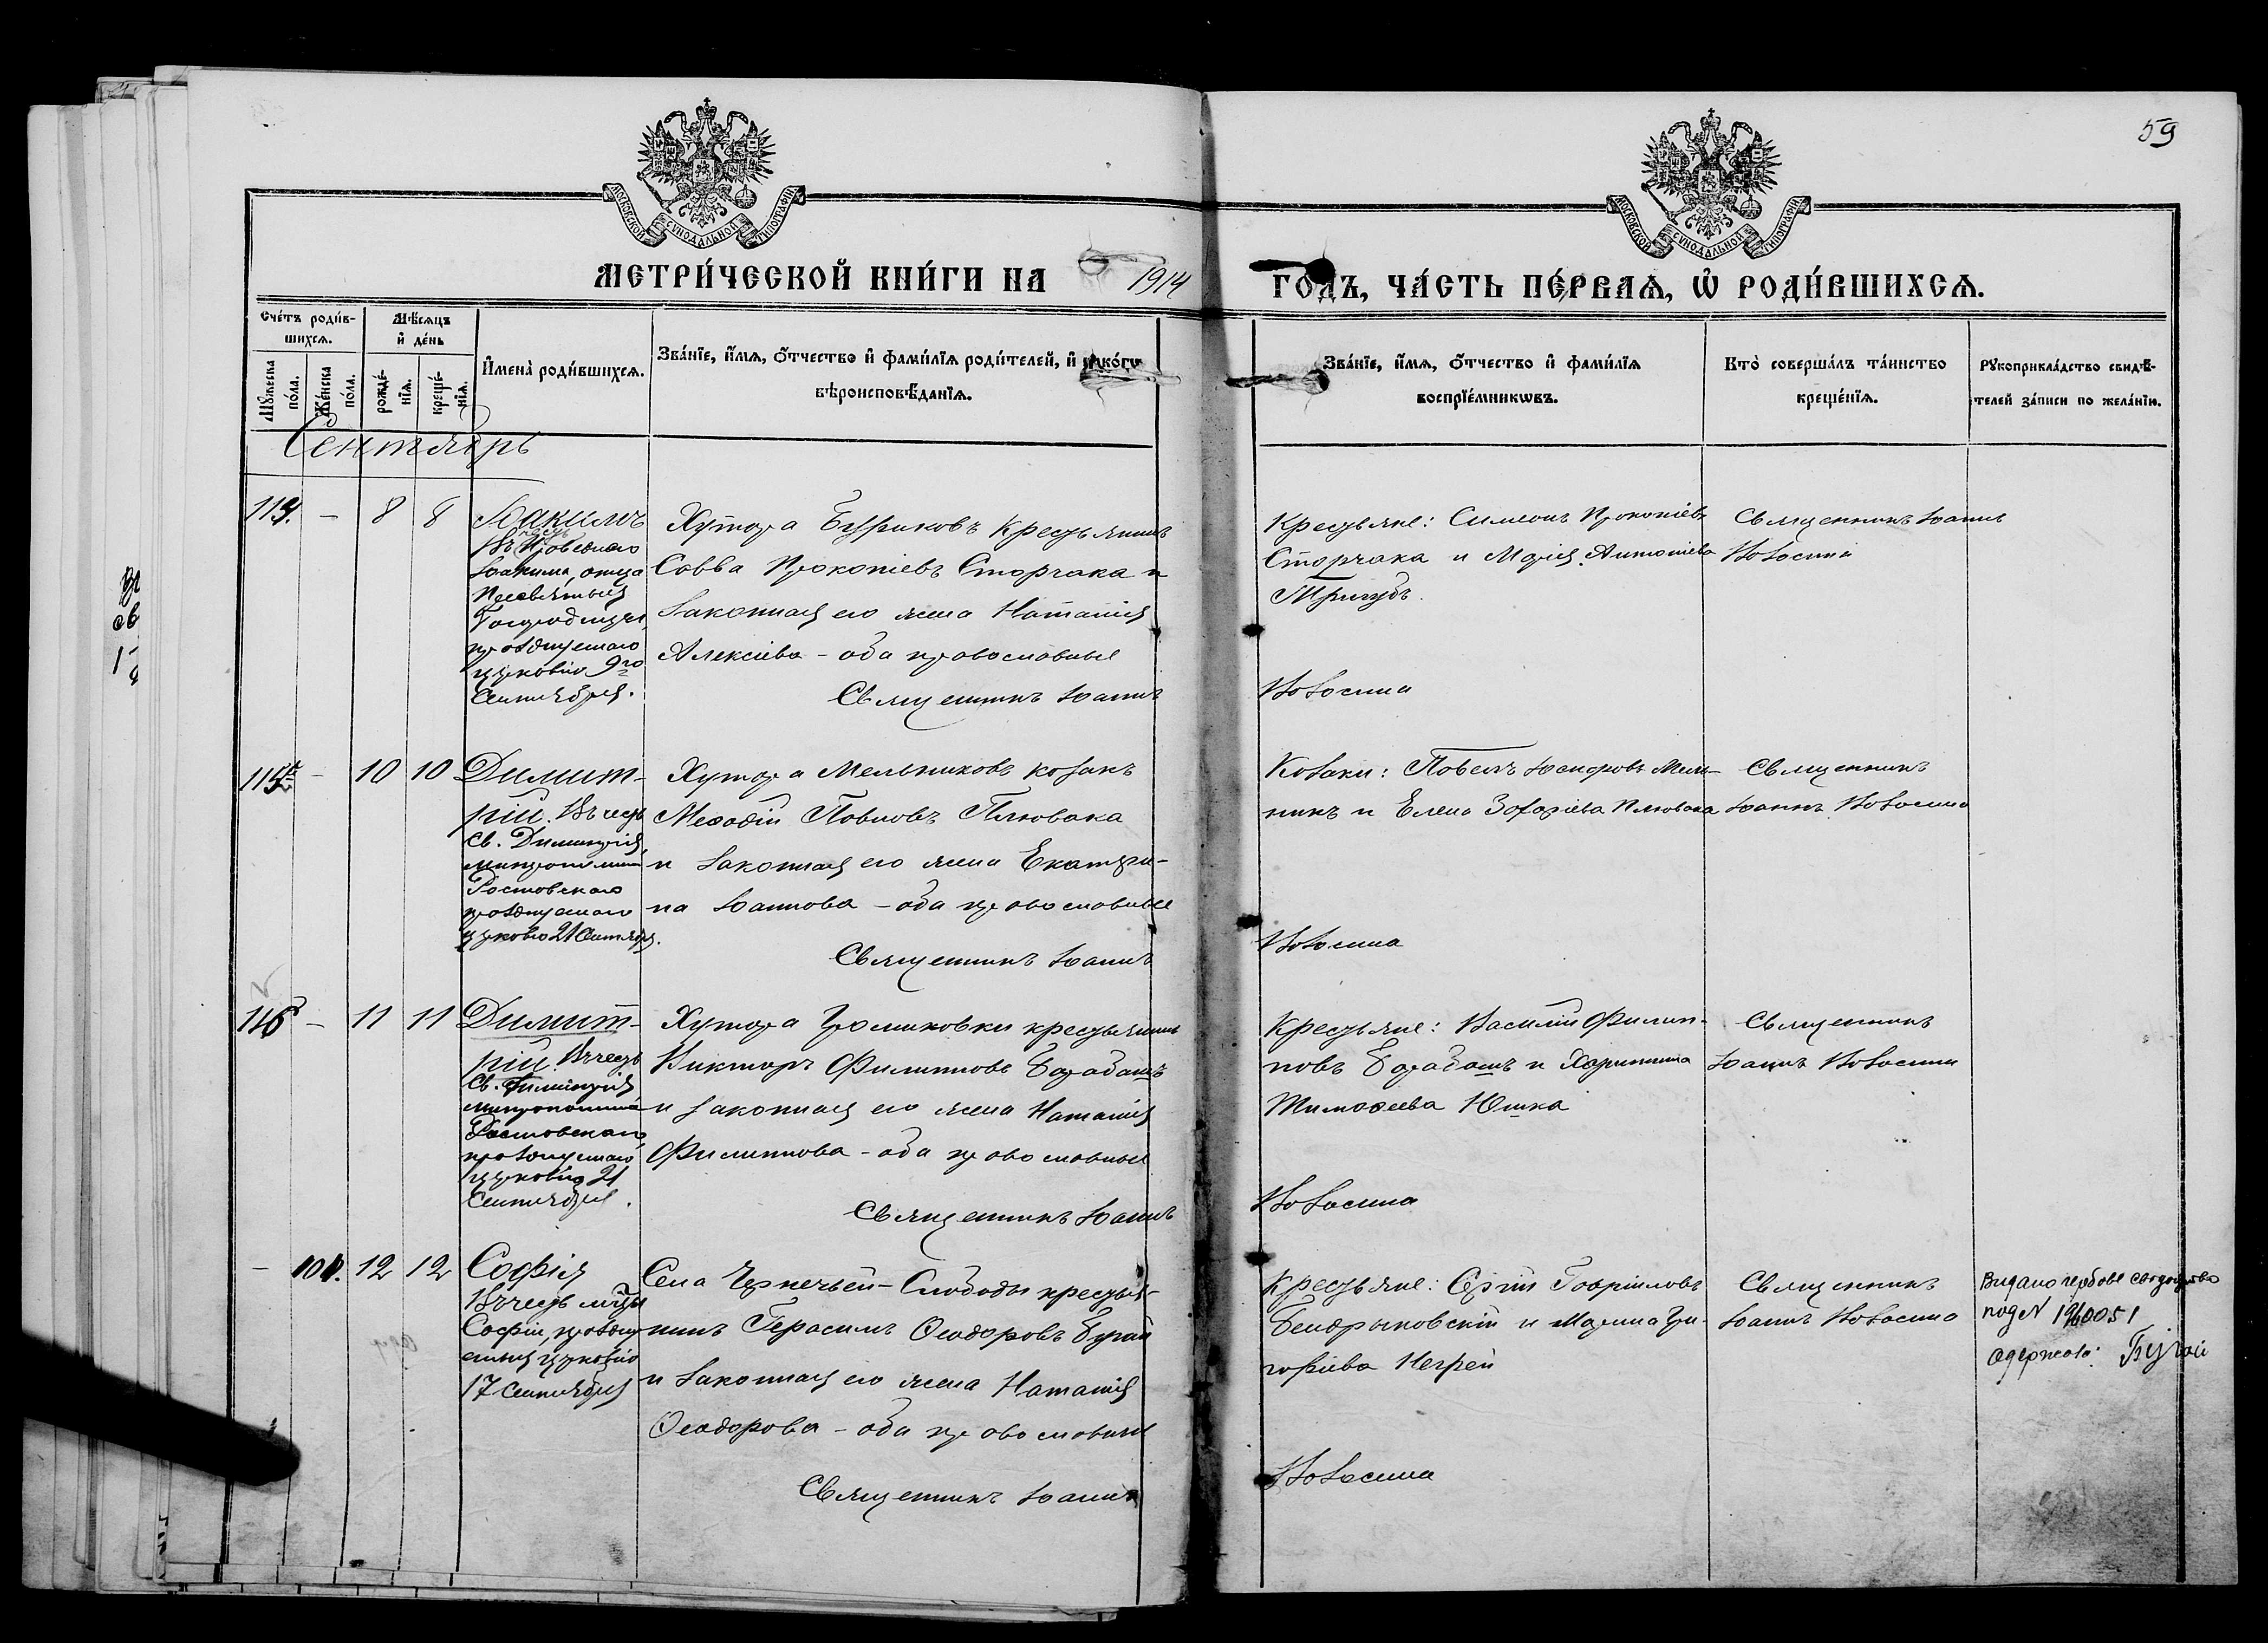 59
МОСКОВСКОЙ СѴНОДАЛЬНОЙ ТИПОГРАФІИ
МОСКОВСКОЙ СѴНОДАЛЬНОЙ ТИПОГРАФІИ
МЕТРИ́ЧЕСКОЙ КНИ́ГИ НА 1914 ГО́ДЪ, ЧА́СТЬ ПЕ́РВАѦ, Ѡ РОДИ́ВШИХСѦ.
Сче́тъ роди́в-
шихсѧ.
Мꙋжеска по́ла.
Же́нска по́ла.
Мѣ́сѧцъ
и҆ де́нь
рожде́-
нїѧ.
креще́-
нїѧ.
И҆мена̀ роди́вшихсѧ.
Зва́нїе, и҆́мѧ, ѻ҆́тчество и҆ фами́лїѧ роди́телей, и҆ како́гѡ
вѣроисповѣ́данїѧ.
Зва́нїе, и҆́мѧ, ѻ҆́тчество и҆ фами́лїѧ
воспрїе́мникѡвъ.
Кто̀ соверша́лъ та́инство
креще́нїѧ.
Рꙋкоприкла́дство свидѣ́-
телей за́писи по жела́нїю.
Сентябрь
114. – 8 8
Іоакимъ
Въ честь
Праведнаго
Іоакима, отца
Пресвятыя
Богородицы,
празднуемаго
церковію 9го
Сентября.
Хутора Буриковъ крестьянинъ
Савва Прокопіевъ Сторчака и
законная его жена Наталія
Алексіева – оба православные
Священникъ Іоаннъ
Крестьяне: Симеонъ Прокопіевъ
Сторчака и Марія Антоніева
Тригубъ.
Священникъ Іоаннъ
115 – 10 10
Димит-
рій. Въ честь
Св. Димитрія,
митрополита
Ростовскаго
празднуемаго
церковію 21 Сентября.
Хутора Мельниковъ козакъ
Меѳодій Павловъ Плювака
и законная его жена Екатери-
на Іоаннова – оба православные
Священникъ Іоаннъ
Козаки: Павелъ Іосифовъ Мель-
никъ и Елена Захаріева Плювака
Священникъ
Іоаннъ
116 – 11 11
Димит-
рій. Въ честь
Св. Димитрія
митрополита
Ростовскаго,
празднуемаго
церковію 21
Сентября.
Хутора Громиковки крестьянинъ
Викторъ Филипповъ Барабашъ
и законная его жена Наталія
Филиппова – оба православные
Священникъ Іоаннъ
Крестьяне: Василій Филип-
повъ Барабашъ и Харитина
Тимоѳеева Юшка
Священникъ
Іоаннъ
– 101. 12 12
Софія
Въ честь мцы
Софіи, праздну
емыя церковію
17 Сентября
Села Чернечьей-Слободы крестья-
нинъ Герасимъ Ѳеодоровъ Бугай
и законная его жена Наталія
Ѳеодорова – оба православные
Священникъ Іоаннъ
Крестьяне: Сергій Гавріиловъ
Бендрыковскій и Марина Гри-
горіева Негрей
Священникъ
Іоаннъ
Видано
под N
одержав: Бугай